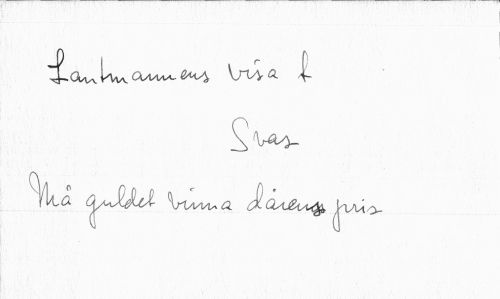 Lantmannens visa t
Svas
Må guldet vinna dårens pris